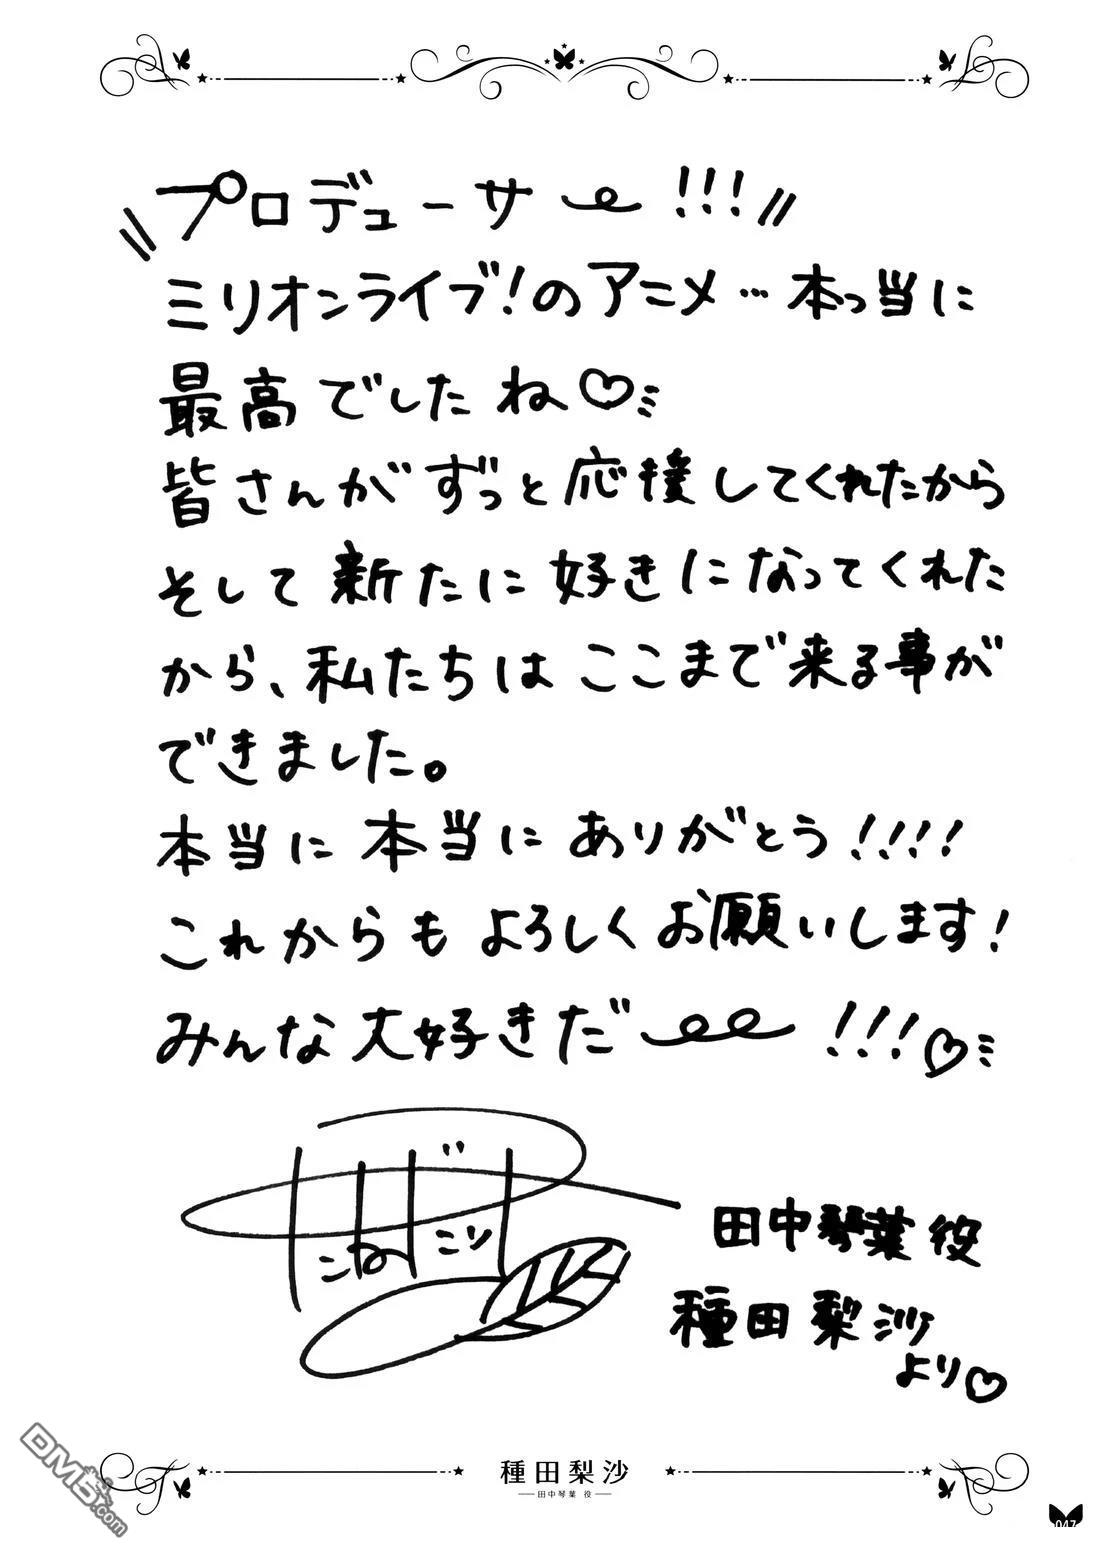 \\プロデューサー!!!//
ミリオンライブ!のアニメ…本っ当に
最高でしたね♡
皆さんがずっと応援してくれたから
そして新たに好きになってくれた
から、私たちはここまで来る事が
できました。
本当に本当にありがとう!!!!
これからもよろしくお願いします!
みんな大好きだ〜!!!♡
田中琴葉役
種田梨沙
より♡
種田梨沙
田中琴葉 役
DM5.com
047